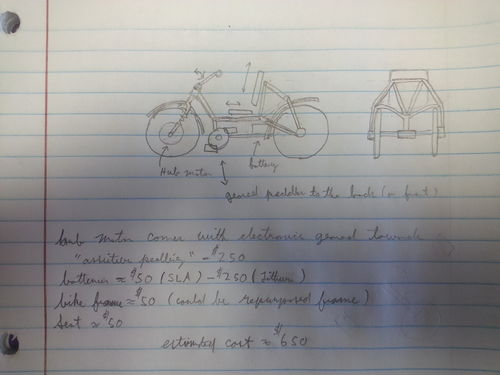 Hub motor
battery
geared peddler to the back (or front)
hub motor comes with electronics geared towards a
"assistive peddling" - $250
batteries ≈ $50 (SLA) - $250 (Lithium)
bike frame ≈ $50 (could be repurposed frame)
seat ≈ $50
estimated cost ≈ $650